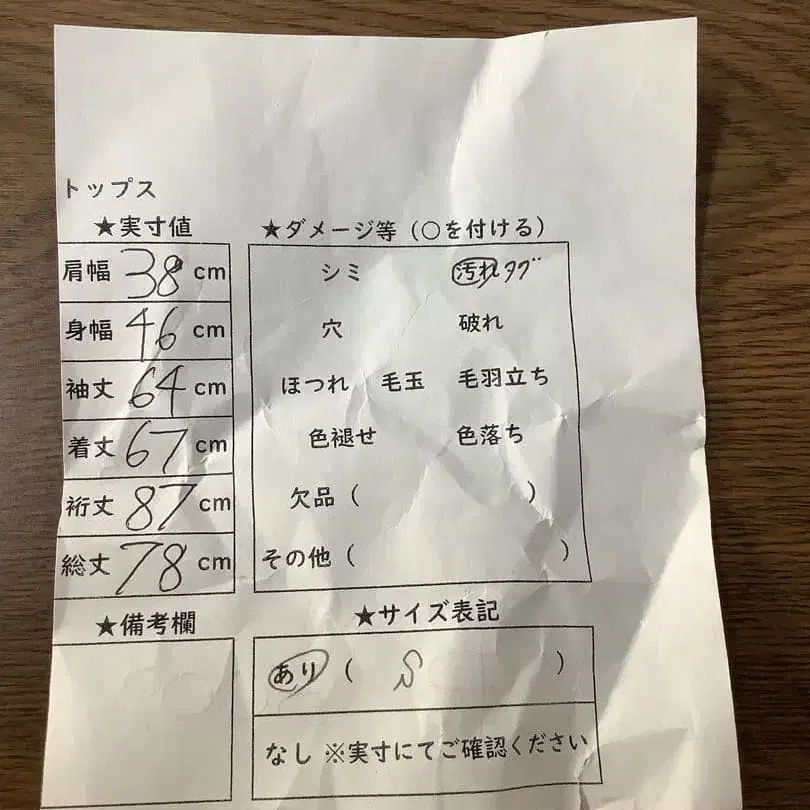 トップス
★実寸値
肩幅 38 cm
身幅 46 cm
袖丈 64 cm
着丈 67 cm
裄丈 87 cm
総丈 78 cm
★備考欄
★ダメージ等（○を付ける）
シミ 汚れ タグ
穴 破れ
ほつれ 毛玉 毛羽立ち
色褪せ 色落ち
欠品（ ）
その他（ ）
★サイズ表記
あり（ S ）
なし ※実寸にてご確認ください